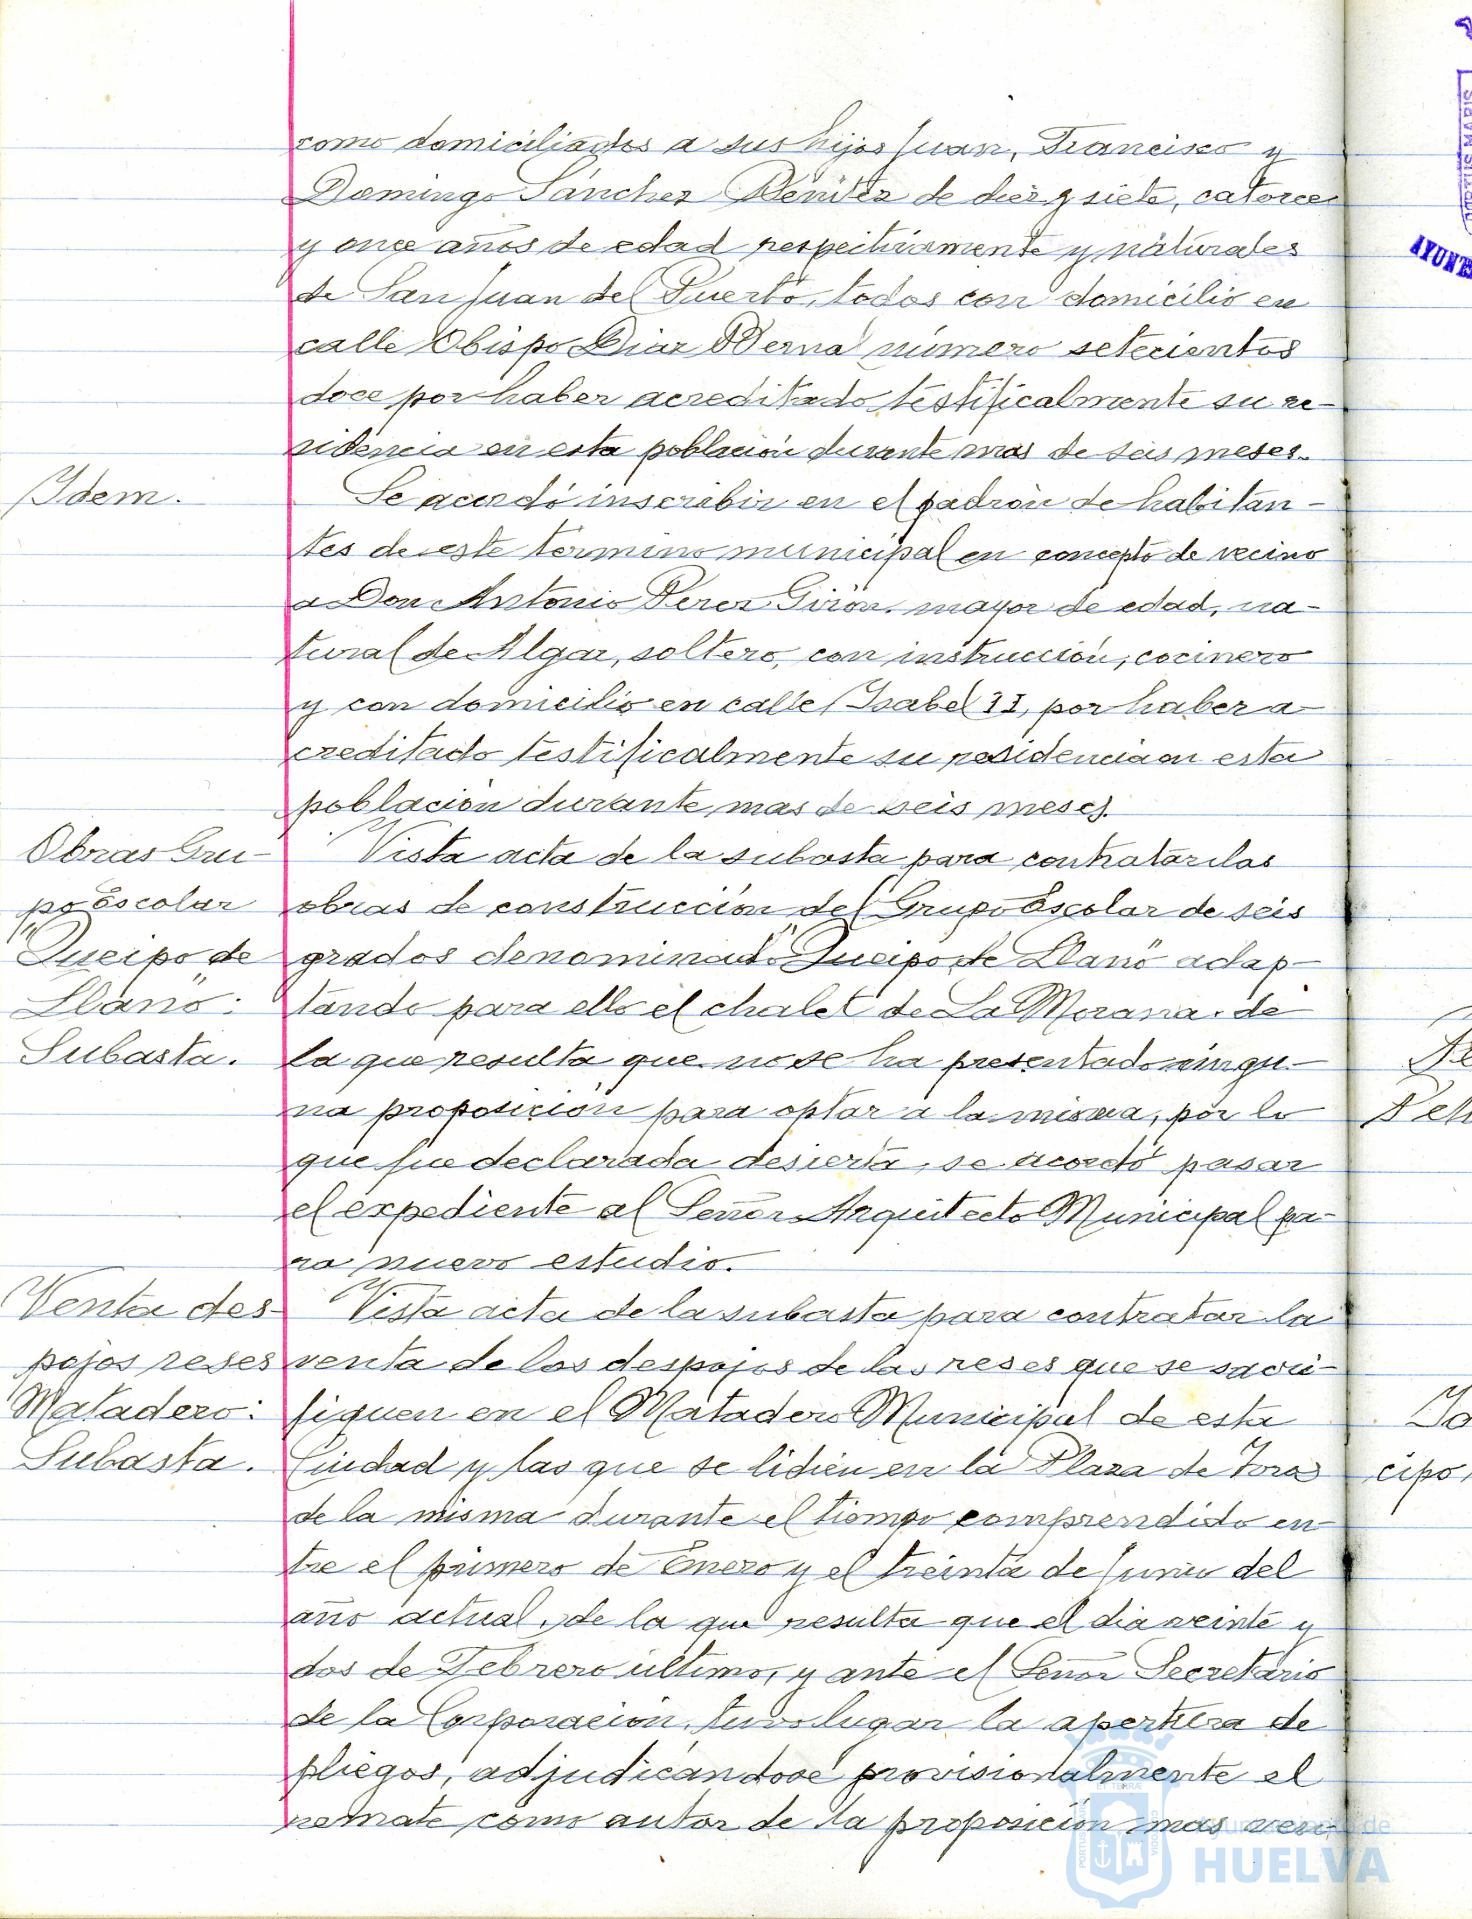 como domiciliados a sus hijos Juan, Francisco y
Domingo Sánchez Benítez de diez y siete, catorce
y once años de edad respectivamente y naturales
de San Juan del Puerto, todos con domicilio en
calle Obispo Diaz Bernal número setecientos
doce por haber acreditado testificalmente su re-
sidencia en esta población durante mas de seis meses.
Idem.
Se acordó inscribir en el padrón de habitan-
tes de este término municipal en concepto de vecino
a Don Antonio Perez Girón, mayor de edad, na-
tural de Algar, soltero, con instrucción, cocinero
y con domicilio en calle Isabel II, por haber a-
creditado testificalmente su residencia en esta
población durante mas de seis meses.
Obras Gru-
po Escolar
"Queipo de
Llano":
Subasta.
Vista acta de la subasta para contratar las
obras de construcción del Grupo Escolar de seis
grados denominado "Queipo de Llano" adap-
tando para ello el chalet de La Morana, de
la que resulta que no se ha presentado ningu-
na proposición para optar a la misma, por lo
que fue declarada desierta, se acordó pasar
el expediente al Señor Arquitecto Municipal pa-
ra nuevo estudio.
Venta des-
pojos reses
Matadero:
Subasta.
Vista acta de la subasta para contratar la
venta de los despojos de las reses que se sacri-
fiquen en el Matadero Municipal de esta
Ciudad y las que se lidien en la Plaza de Toros
de la misma durante el tiempo comprendido en-
tre el primero de Enero y el treinta de Junio del
año actual, de la que resulta que el dia veinte y
dos de Febrero último, y ante el Señor Secretario
de la Corporación, tuvo lugar la apertura de
pliegos, adjudicándose provisionalmente el
remate como autor de la proposición mas ven-
Ayuntamiento de
HUELVA